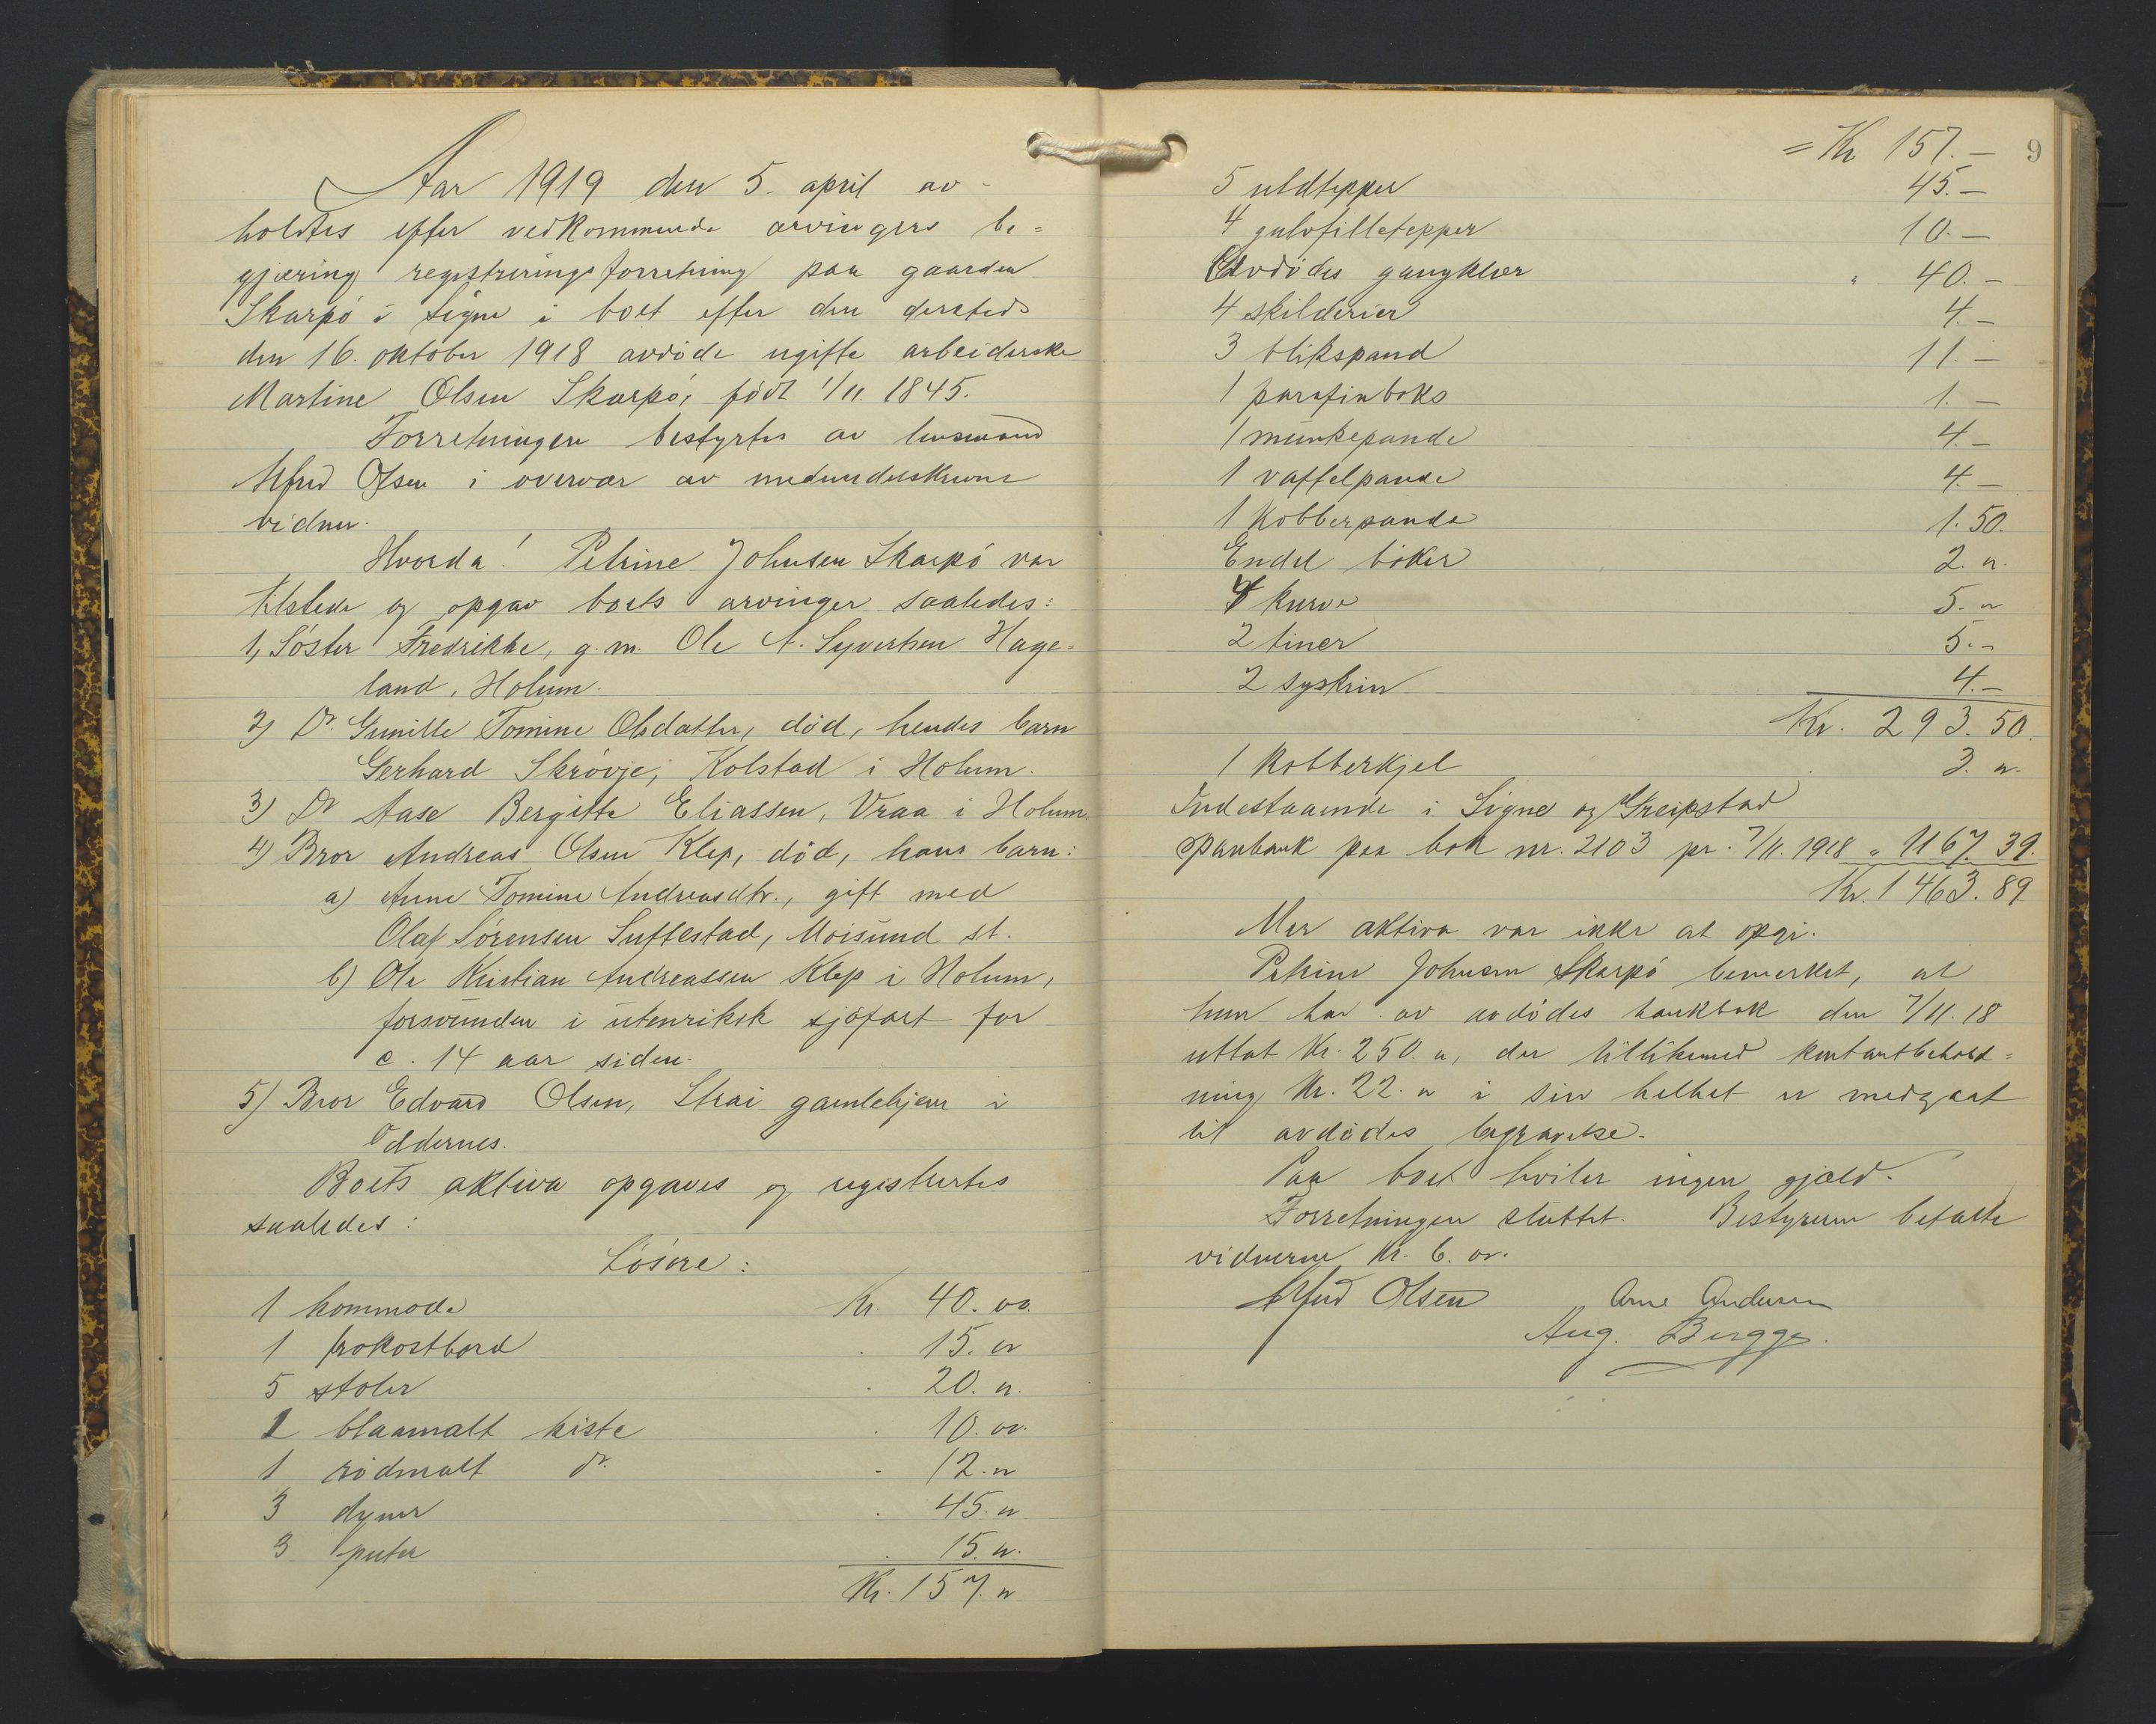 Aar 1919 den 5. april av-
holdtes efter vedkommende arvingers be=
gjæring registreringsforretning paa gaarden
Skarpö i Søgne i boet efter den dersteds
den 16. oktober 1918 avdöde ugifte arbeiderske
Martine Olsen Skarpö, född 1/11. 1845.
Forretningen bestyrtes av lensmand
Alfred Olsen i overvær av medunderskrevne
vidner.
Hvorda! Petrine Johnsen Skarpö var
tilstede og opgav boets arvinger saaledes:
1, Söster Fredrikke, g. m. Ole A. Syvertsen Hage=
land, Holum.
2) Do. Gunille Tomine Olsdatter, död, hendes barn
Gerhard Skrövje, Kolstad i Holum.
3) Do Aase Bergitte Eliassen, Vraa i Holum.
4) Bror Andreas Olsen Klep, död, hans barn:
a) Anne Tomine Andreasdtr., gift med
Olaf Sörensen Suftestad, Moisund st.
b) Ole Kristian Andreassen Klep i Holum,
forsvunden i utenriksk sjöfart for
c. 14 aar siden.
5) Bror Edvard Olsen, Strai gamlehjem i
Oddernes.
Boets aktiva opgaves og registrertes
saaledes:
Lösöre:
1 kommode Kr. 40. oo.
1 frokostbord 15. oo
5 stoler 20. oo.
1 blaamalt kiste 10. oo.
1 rödmalt do. 12. oo
3 dyner 45. oo
3 puter 15. oo.
Kr. 157. oo
9
= Kr 157. –
5 uldtepper 45. –
4 gulvfilletepper 10. –
Avdödes gangklær " 40. –
4 skilderier 4. –
3 blikspand 11. –
1 parafinboks 1. –
1 munkepande 4. –
1 vaffelpande 4. –
1 kobberpande 1. 50.
Endel böker 2. oo.
4 kurve 5. oo
2 tiner 5. –
2 syskrin 4. –
Kr. 293. 50.
1 kobberkjel 3. oo.
Indestaaende i Søgne og Greipstad
sparebank paa bok nr. 2103 pr. 7/11. 1918 " 1167. 39.
Kr. 1463. 89
Mer aktiva var ikke at opgi.
Petrine Johnsen Skarpö bemerket, at
hun har av avdödes bankbok den 7/11. 18
uttat Kr. 250. oo, der tillikemed kontantbehold=
ning Kr. 22. oo i sin helhet er medgaat
til avdödes begravelse.
Paa boet hviler ingen gjæld.
Forretningen sluttet. Bestyreren betalte
vidnerne Kr. 6. oo.
Alfred Olsen Arne Andersen
Aug. Bergge.